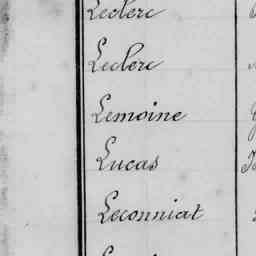 Leclerc
Leclerc
Lemoine
Lucas
Leconniat